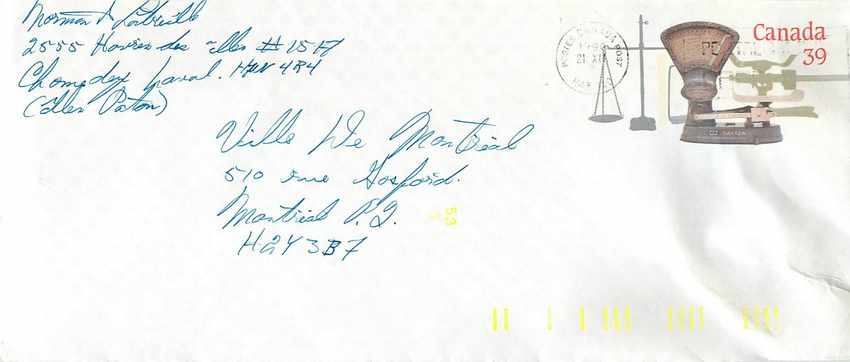 2555 Havre des Illes # 1517
Chomedey Laval. H7W 4R4
(Illes Paton)
Ville De Montréal
510 rue Gosford.
Montréal P.Q.
H2Y 3B7
53
POSTES CANADA POST
21 XII
Canada
39
DAYTON